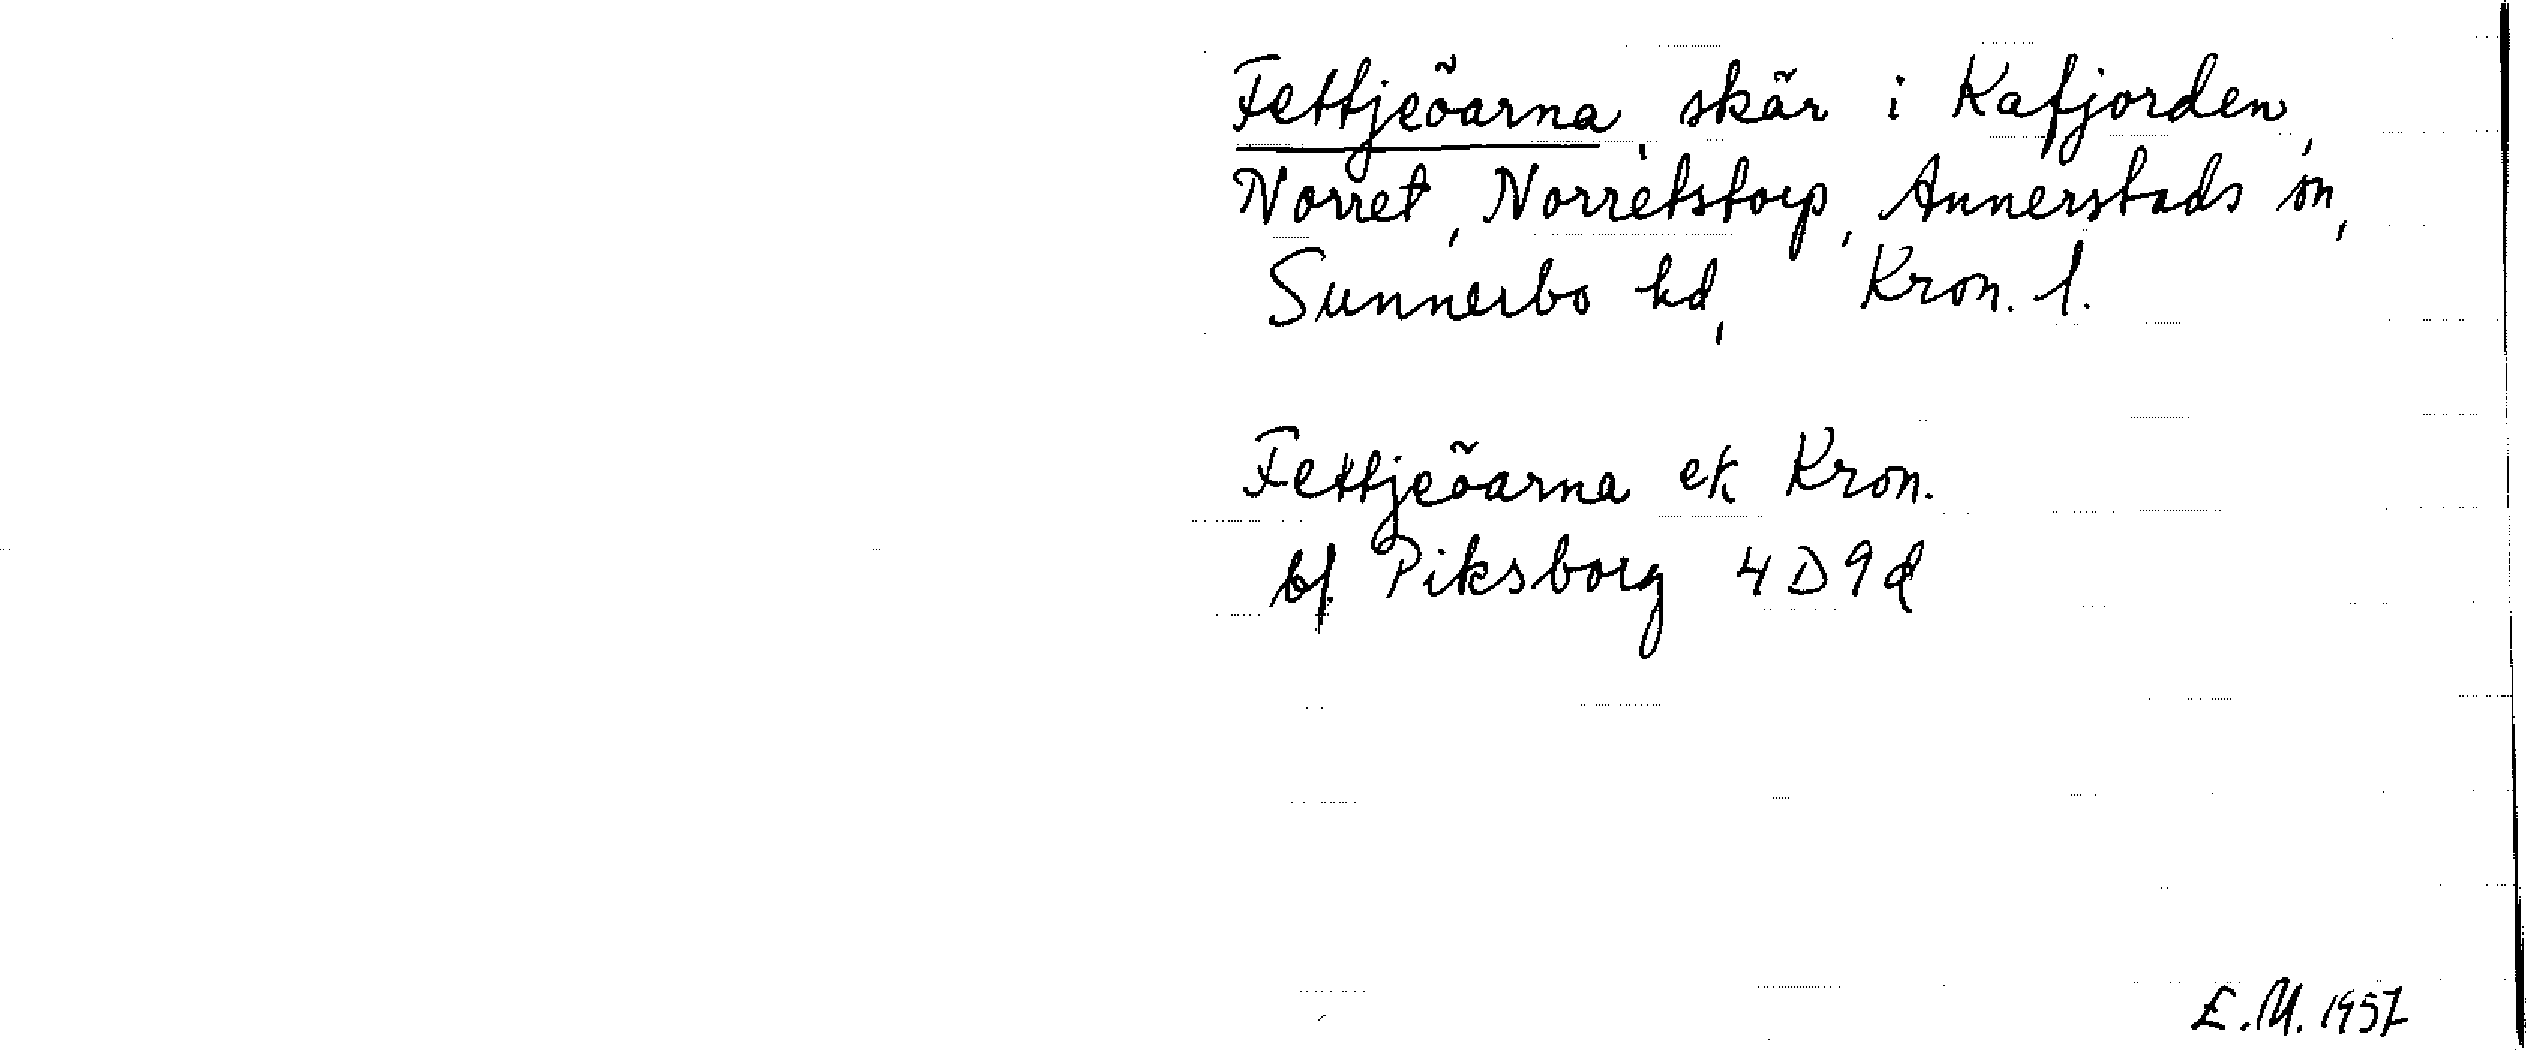 Fettjeöarna, skär i Kafjorden,
Norret, Norretstorp, Annerstads sn,
Sunnerbo hd, Kron. l.
Fettjeöarna ek Kron.
bl. Piksborg 4D9d
E.M. 1957